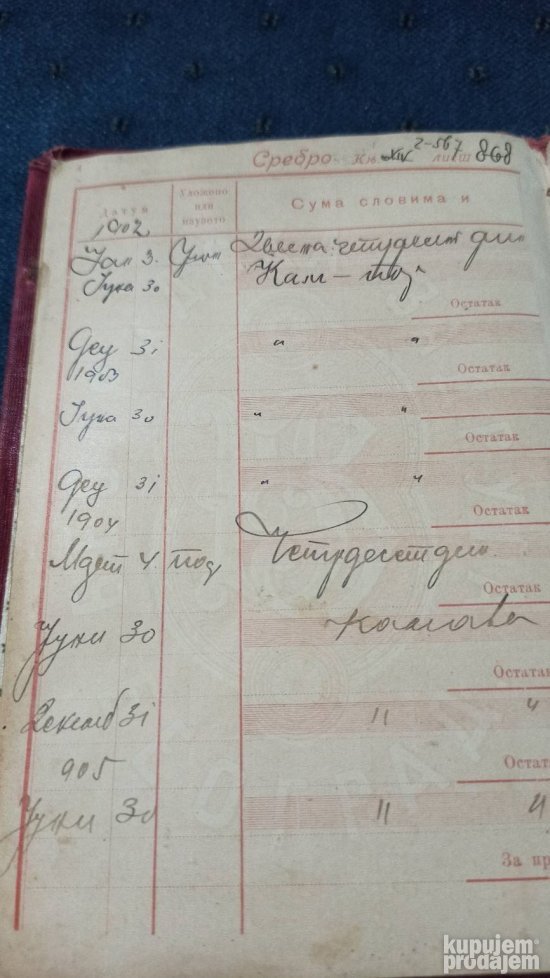 Сребро Књ. XIV 2-567 лист 868
Датум
Уложено или изузето
Сума словима и
1902
Јан 3. Улож Двеста четрдесет дин
Јуна 30 Кам - тој
Остатак
Дец 31 " "
Остатак
1903
Јуна 30 " "
Остатак
Дец 31 " "
Остатак
1904
4 Четрдесет дин.
Остатак
Јуни 30 камата
Остатак
Декемб 31 " "
Оста
905
Јуни 30 " "
За пр
kupujem
prodajem